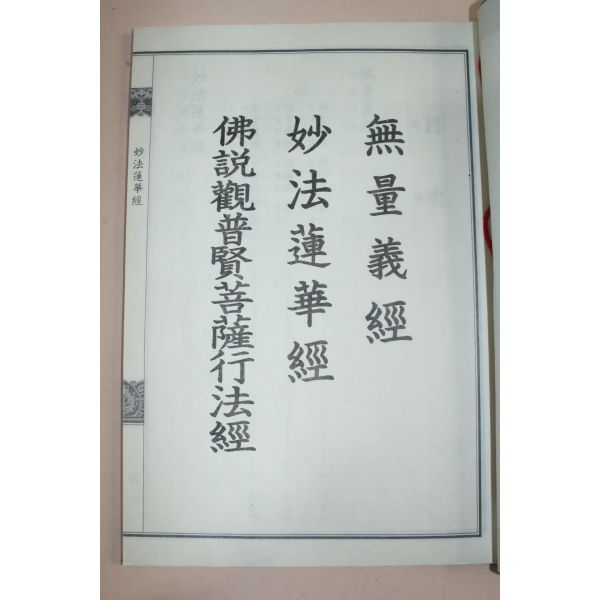 無量義經
妙法蓮華經
佛説觀普賢菩薩行法經
妙法蓮華經